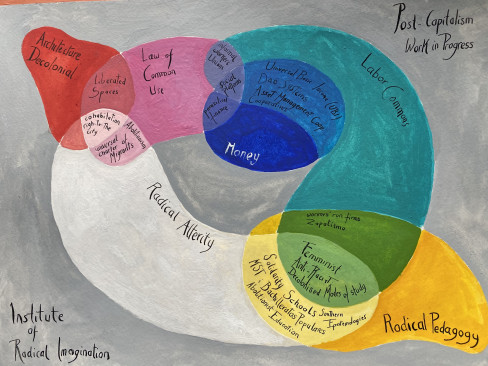 Post-Capitalism
Work in Progress
Architecture
Decolonial
Law of
Common
Use
Liberated
Spaces
cohabitation
right to the
City
Abolitionism
Charter of
Migrants
Universal Basic Income (UBI)
Asset Management Coop
Cooperatives
Money
Labor Commons
Radical Alterity
workers run firms
Zapatismo
Feminist
Anti-Racist
Decolonised Modes of study
Solidarity Schools
MST, Bachilleratos Populares
Abolitionist
Education
Southern
Epistemologies
Radical Pedagogy
Institute
of
Radical Imagination